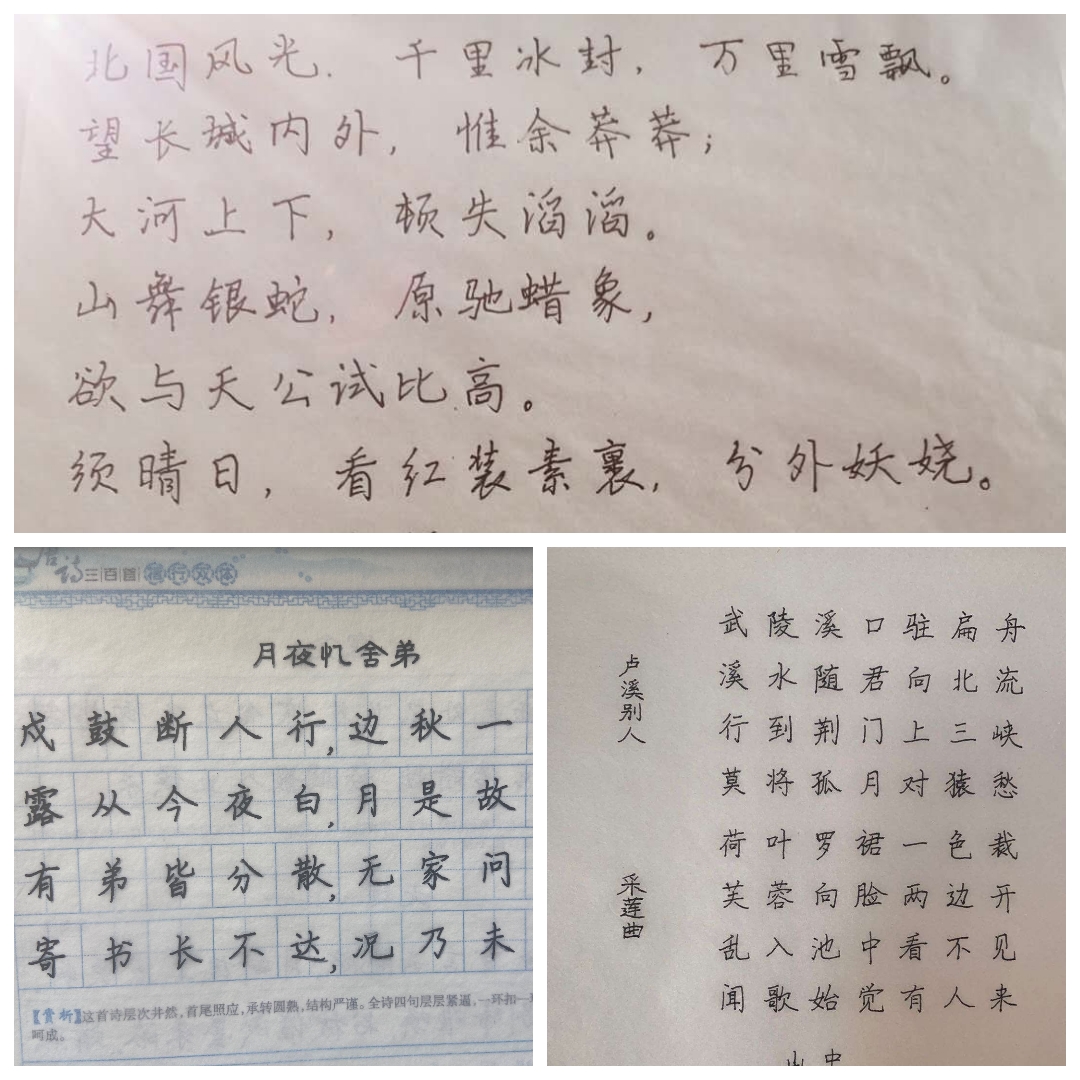 北国风光，千里冰封，万里雪飘。
望长城内外，惟余莽莽；
大河上下，顿失滔滔。
山舞银蛇，原驰蜡象，
欲与天公试比高。
须晴日，看红装素裹，分外妖娆。
唐诗三百首 楷行双体
月夜忆舍弟
戍鼓断人行，边秋一
露从今夜白，月是故
有弟皆分散，无家问
寄书长不达，况乃未
【赏析】这首诗层次井然，首尾照应，承转圆熟，结构严谨。全诗四句层层紧逼，一环扣一
呵成。
卢溪别人
武陵溪口驻扁舟
溪水随君向北流
行到荆门上三峡
莫将孤月对猿愁
采莲曲
荷叶罗裙一色裁
芙蓉向脸两边开
乱入池中看不见
闻歌始觉有人来
山中